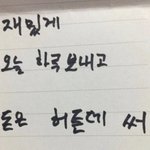 재밌게
오늘 하국 보내고
돈은 허튼데 써